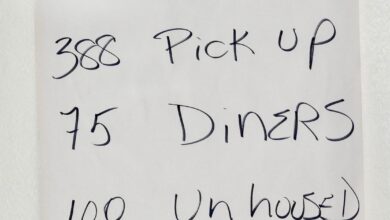 388 Pick UP
75 DinERS
100 UnhousED